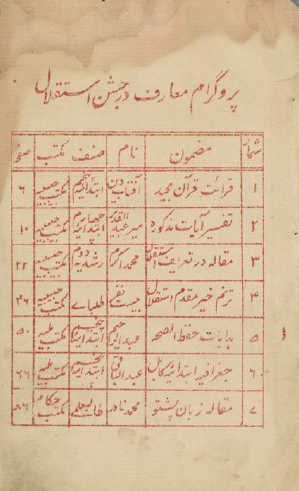 پروگرام معارف در جشن استقلال
شمار مضمون نام صنف مکتب صفحه
۱ قرائت قرآن مجید آفتاب دین پنجم ابتدائیه مکتب حبیبیه ۶
۲ تفسیر آیات مذکوره میر عبدالقدیر چهارم ابتدائیه مکتب حبیبیه ۱۰
۳ مقاله در تعریف استقلال محمد اکرم دوم رشدیه مکتب حبیبیه ۲۲
۴ ترنم خیر مقدم استقلال بیست نفر طلبای مکتب حبیبیه ۴۶
۵ هدایات حفظ الصحه عبدالرحیم پنجم ابتدائیه مکتب ۵۰
۶ جغرافیه ابتدائیه کابل عبدالباقی پنجم ابتدائیه مکتب ۶۶
۷ مقاله زبان پشتو محمد نادر طالبعلم مکتب حکام